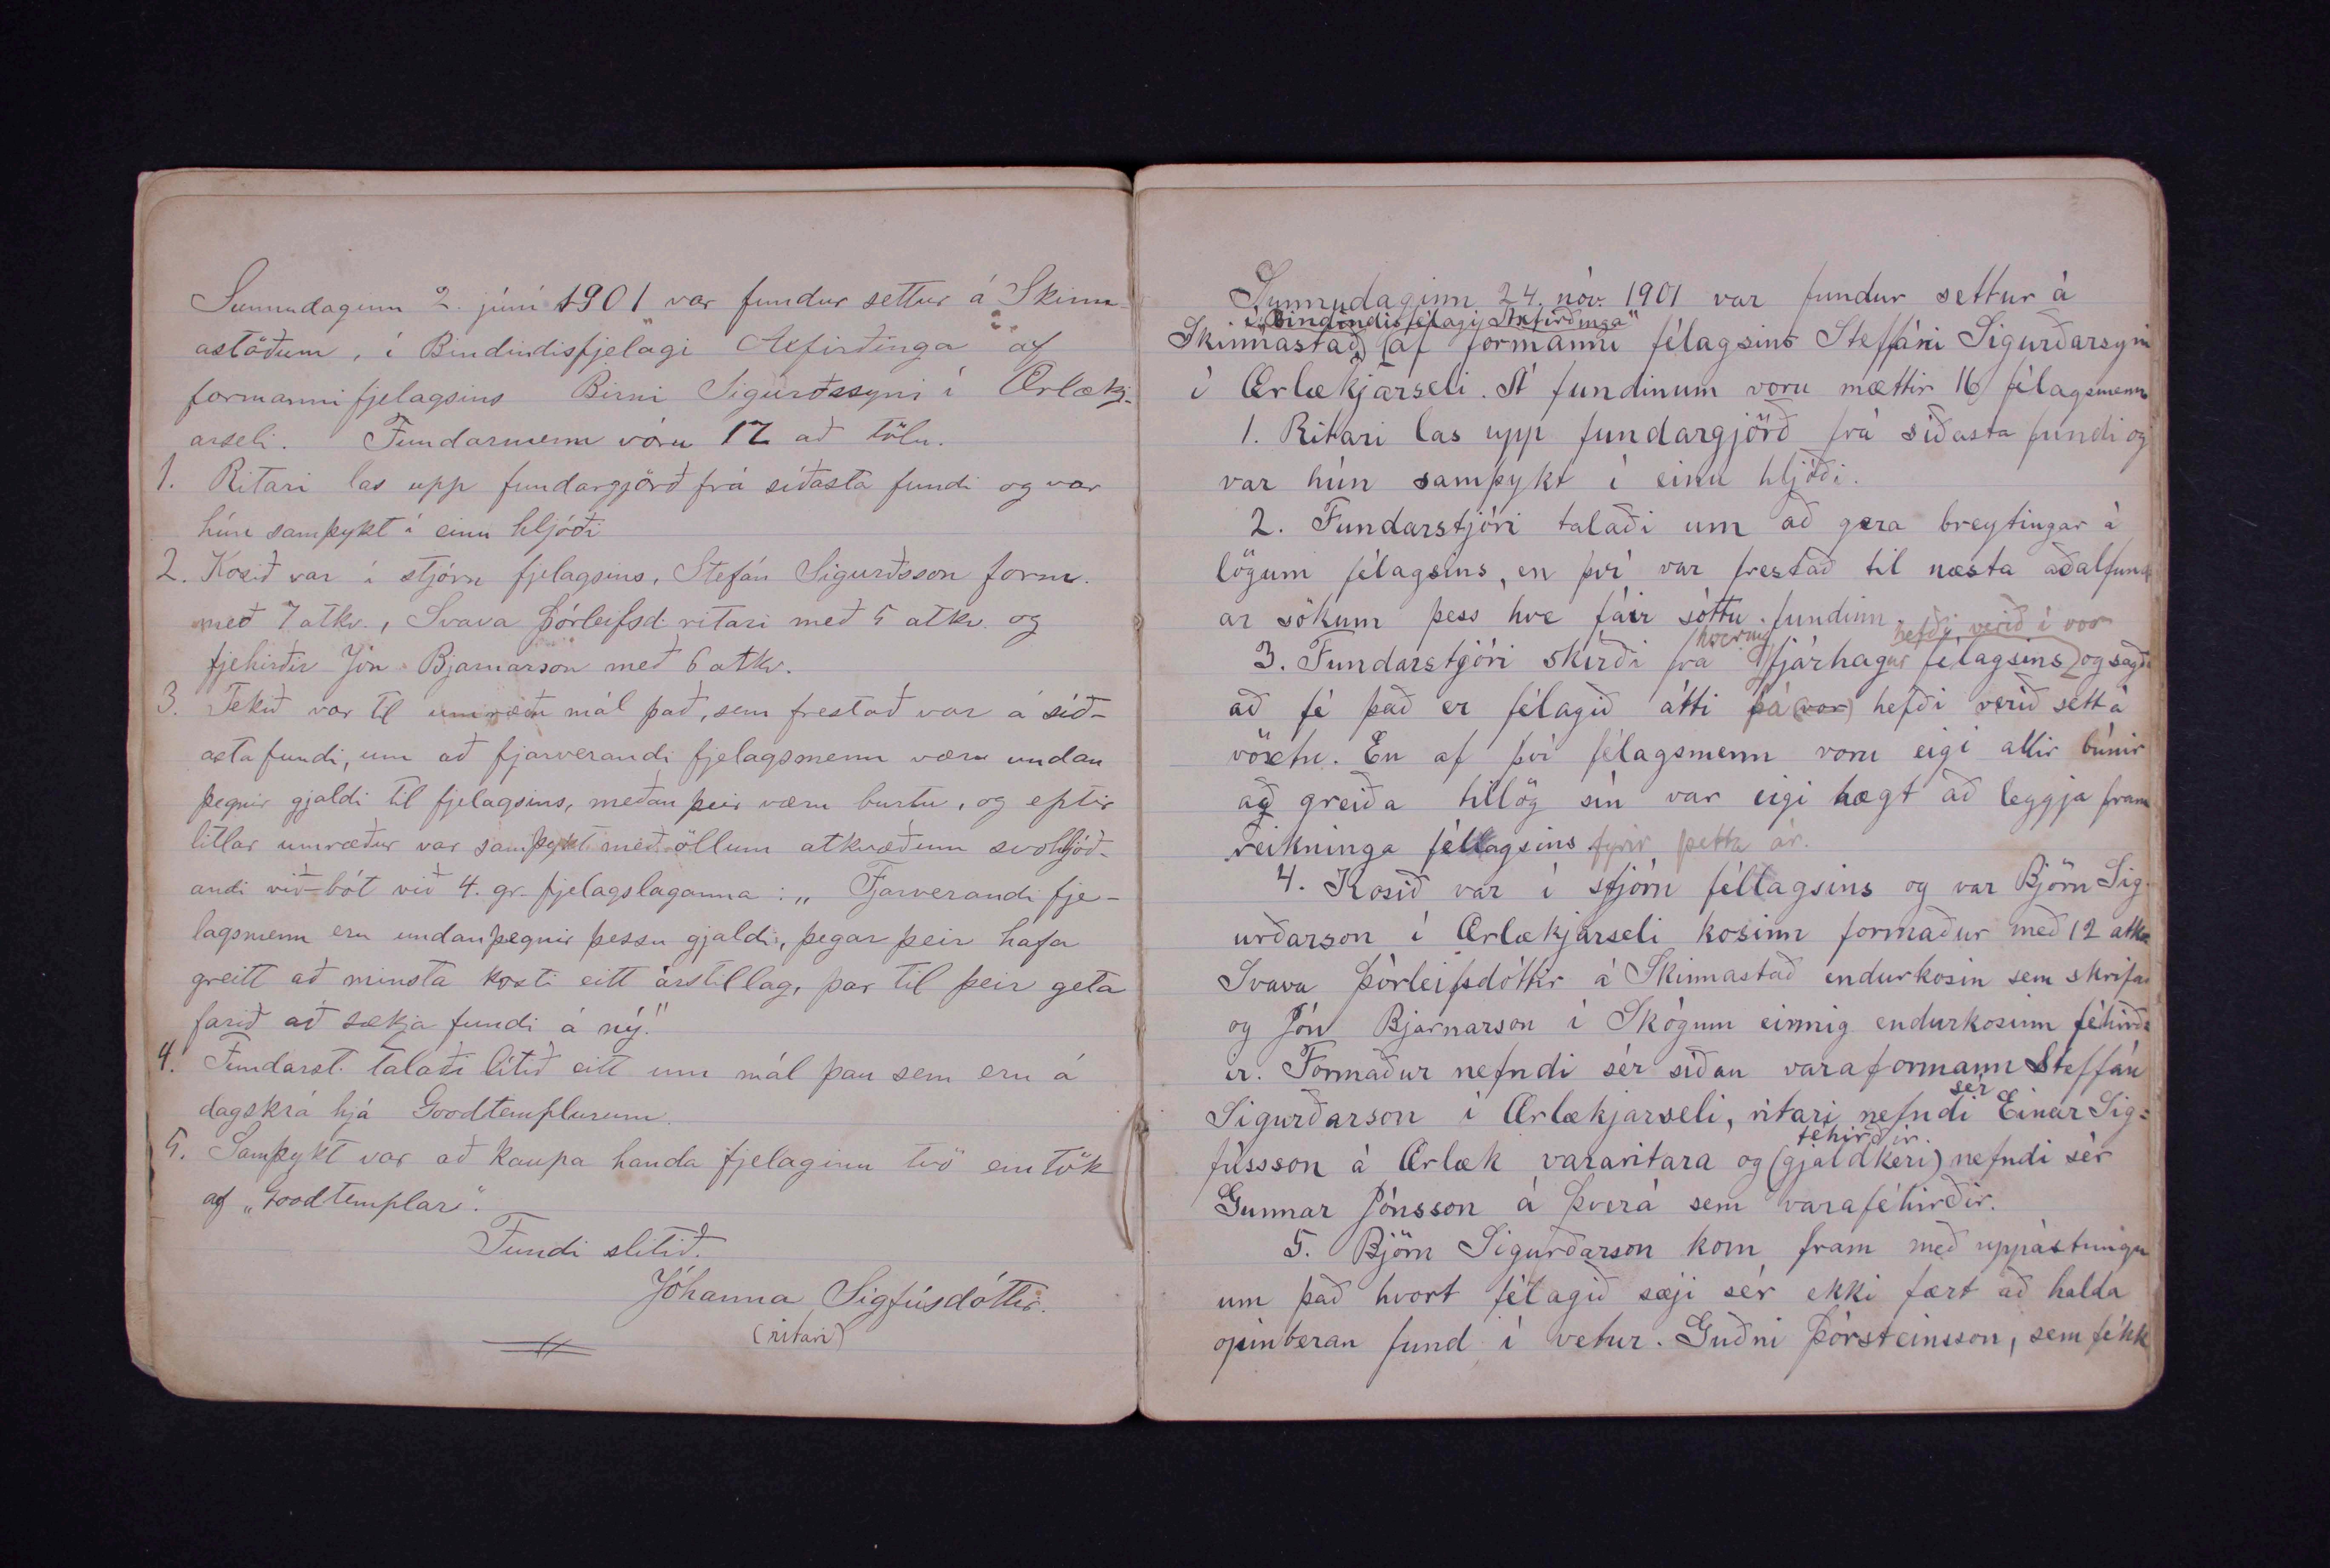 Sunnudaginn 2. júní 1901 var fundur settur á Skinn-
astöðum, í Bindindisfjelagi Axfirðinga af
formanni fjelagsins Birni Sigurðssyni í Ærlækj-
arseli. Fundarmenn vóru 12 að tölu.
1. Ritari las upp fundargjörð frá síðasta fundi og var
hún samþykt í einu hljóði
2. Kosið var í stjórn fjelagsins, Stefán Sigurðsson form.
með 7 atkv., Svava Þórleifsd. ritari með 5 atkv. og
fjehirðir Jón Bjarnarson með 6 atkv.
3. Tekið var til umræðu mál það, sem frestað var á síð-
asta fundi, um að fjarverandi fjelagsmenn væru undan
þegnir gjaldi til fjelagsins, meðan þeir væru burtu, og eptir
litlar umræður var samþykt með öllum atkvæðum svohljóð-
andi við-bót við 4. gr. fjelagslaganna: „Fjarverandi fje-
lagsmenn eru undanþegnir þessu gjaldi, þegar þeir hafa
greitt að minsta kosti eitt árstillag, þar til þeir geta
farið að sækja fundi á ný."
4. Fundarst. talaði lítið eitt um mál þau sem eru á
dagskrá hjá Goodtemplurum.
5. Samþykt var að kaupa handa fjelaginu tvö eintök
af „Goodtemplar".
Fundi slitið.
Jóhanna Sigfúsdóttir.
(ritari)
Sunnudaginn 24. nóv. 1901 var fundur settur á
í „Bindindisfélagi Axfirðinga"
Skinnastað (af formanni félagsins Steffáni Sigurðarsyni
í Ærlækjarseli. Á fundinum voru mættir 16 félagsmenn
1. Ritari las upp fundargjörð frá síðasta fundi og
var hún samþykt í einu hljóði.
2. Fundarstjóri talaði um að gera breytingar á
lögum félagsins, en því var frestað til næsta aðalfund
ar sökum þess hve fáir sóttu fundinn.
hvernig hefði verið í vor
3. Fundarstjóri skírði frá fjárhagur félagsins og sagði
að fé það er félagið átti þá (var) hefði verið sett á
vöxtu. En af því félagsmenn voru eigi allir búnir
að greiða tillög sín var eigi hægt að leggja fram
reikninga féllagsins fyrir þetta ár.
4. Kosið var í stjórn féllagsins og var Björn Sig
urðarson í Ærlækjarseli kosinn formaður með 12 atkv
Svava Þórleifsdóttir á Skinnastað endurkosin sem skrifar
og Jón Bjarnarson í Skógum einnig endurkosinn féhirð=
ir. Formaður nefndi sér síðan varaformann Steffán
sér
Sigurðarson í Ærlækjarseli, ritari nefndi Einar Sig=
féhirðir.
fússson á Ærlæk vararitara og (gjaldkeri) nefndi sér
Gunnar Jónsson á Þverá sem varaféhirðir.
5. Björn Sigurðarson kom fram með uppástungu
um það hvort félagið sæji sér ekki fært að halda
opinberan fund í vetur. Guðni Þórsteinsson, sem fékk